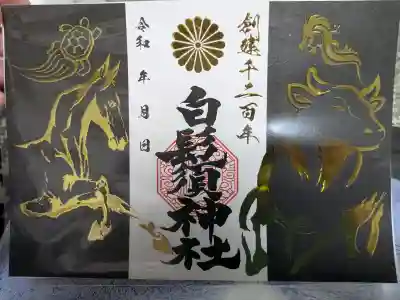 創建千二百年
白髭須神社
令和 年 月 日